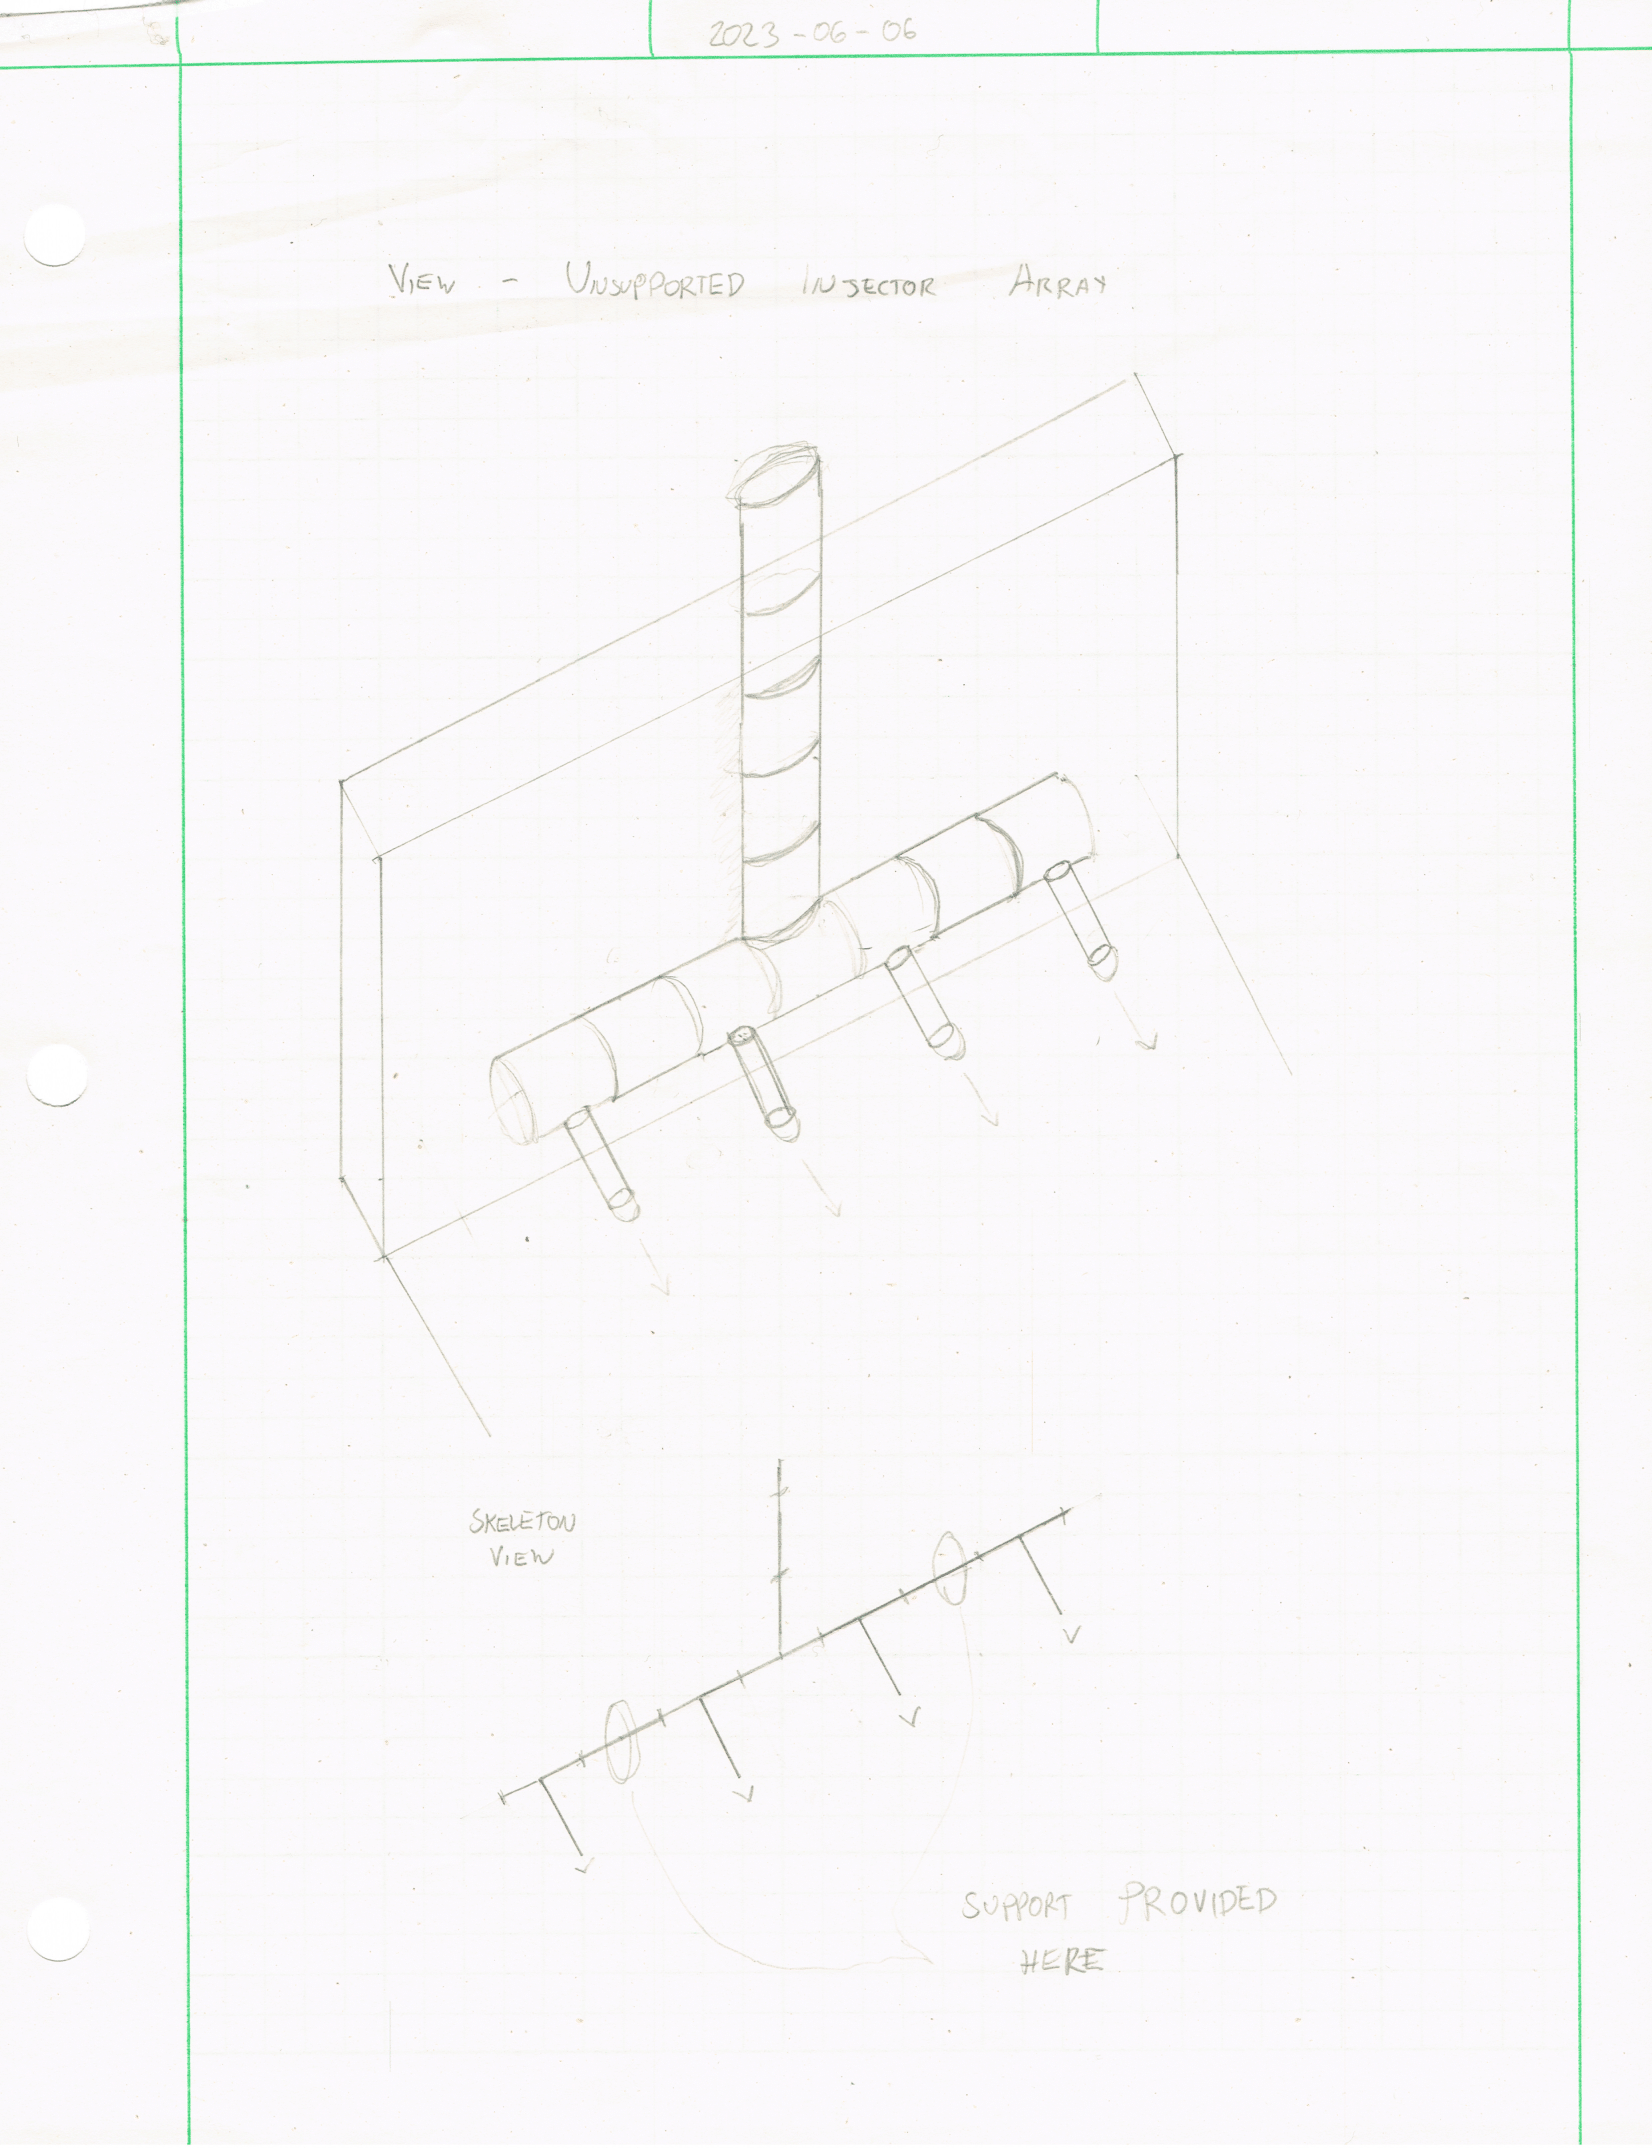 2023-06-06
VIEW - UNSUPPORTED INJECTOR ARRAY
SKELETON
VIEW
SUPPORT PROVIDED
HERE